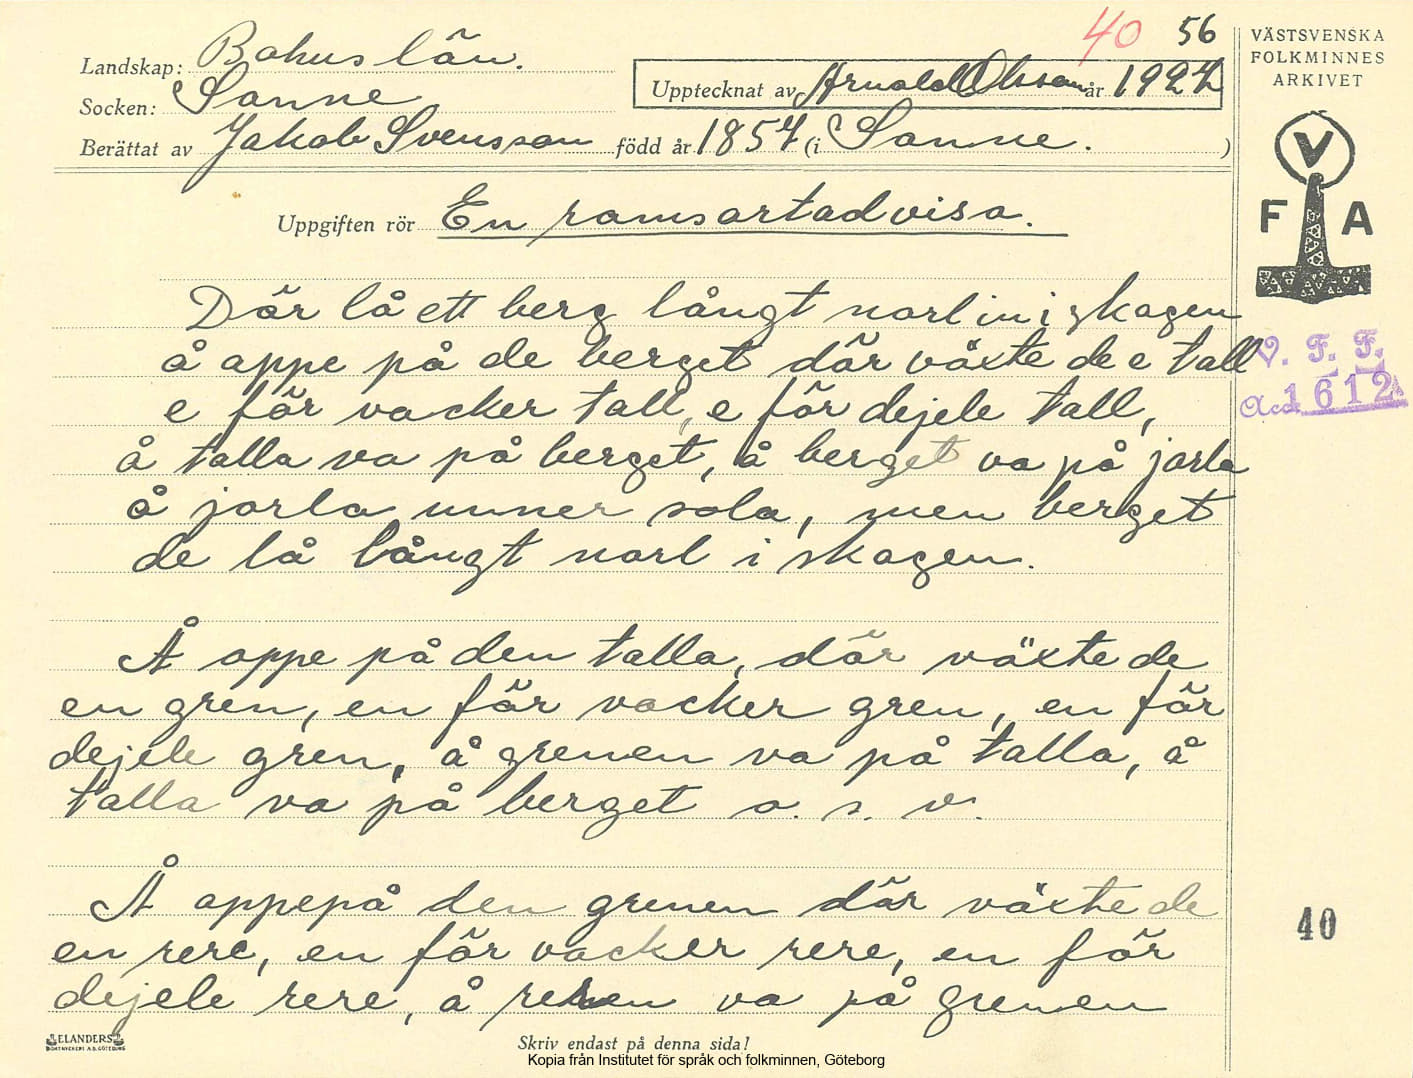 40 56
VÄSTSVENSKA
FOLKMINNES
ARKIVET
Landskap: Bohuslän.
Upptecknat av Arnold Olsson år 1927
Socken: Sanne
Berättat av Jakob Svensson född år 1857 (i Sanne. )
V
F A
Uppgiften rör En ramsartad visa.
Där lå ett berg långt norl in i skogen
å oppe på de berget där växte de e tall
e för vacker tall, e för dejele tall,
å talla va på berget, å berget va på jorla
å jorla unner sola, men berget
de lå långt norl i skogen.
V. F. F.
Acc. 1612
Å oppe på den talla, där växte de
en gren, en för vacker gren, en för
dejele gren, å grenen va på talla, å
talla va på berget o. s. v.
Å oppepå den grenen där växte de
en rere, en för vacker rere, en för
dejele rere, å reren va på grenen
40
ELANDERS
BOKTRYCKERI A.B. GÖTEBORG
Skriv endast på denna sida!
Kopia från Institutet för språk och folkminnen, Göteborg